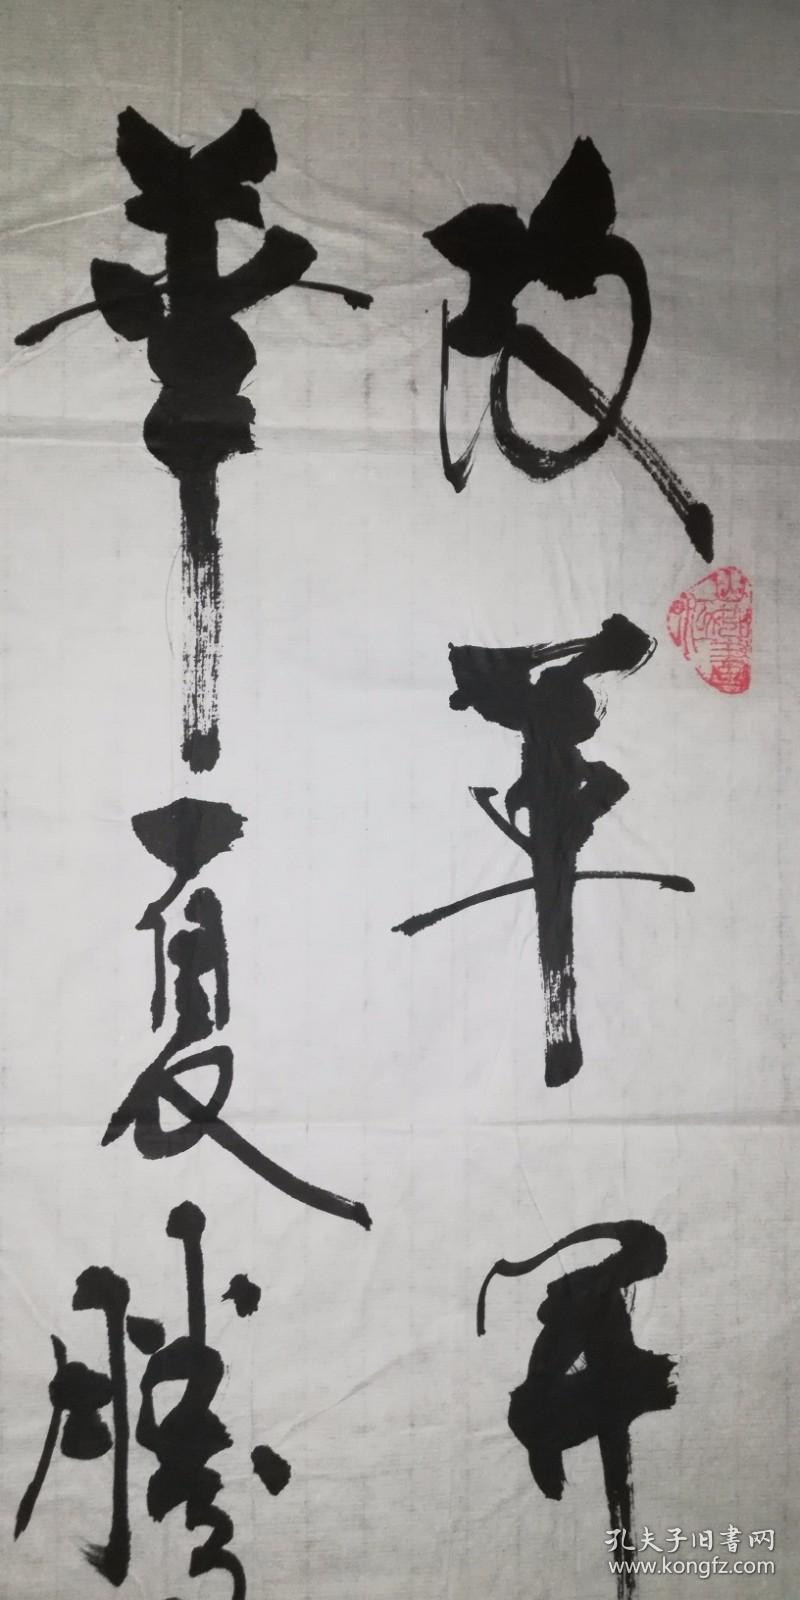 改革開
華夏騰
孔夫子旧書网
www.kongfz.com